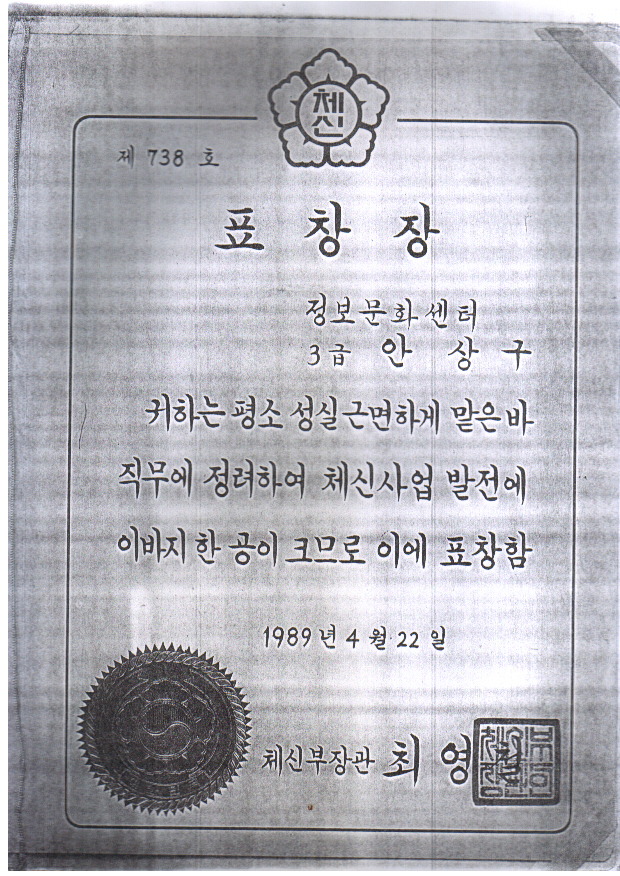 체신
제 738 호
표창장
정보문화센터
3급 안상구
귀하는 평소 성실근면하게 맡은바
직무에 정려하여 체신사업 발전에
이바지한 공이 크므로 이에 표창함
1989년 4월 22일
체신부장관 최영